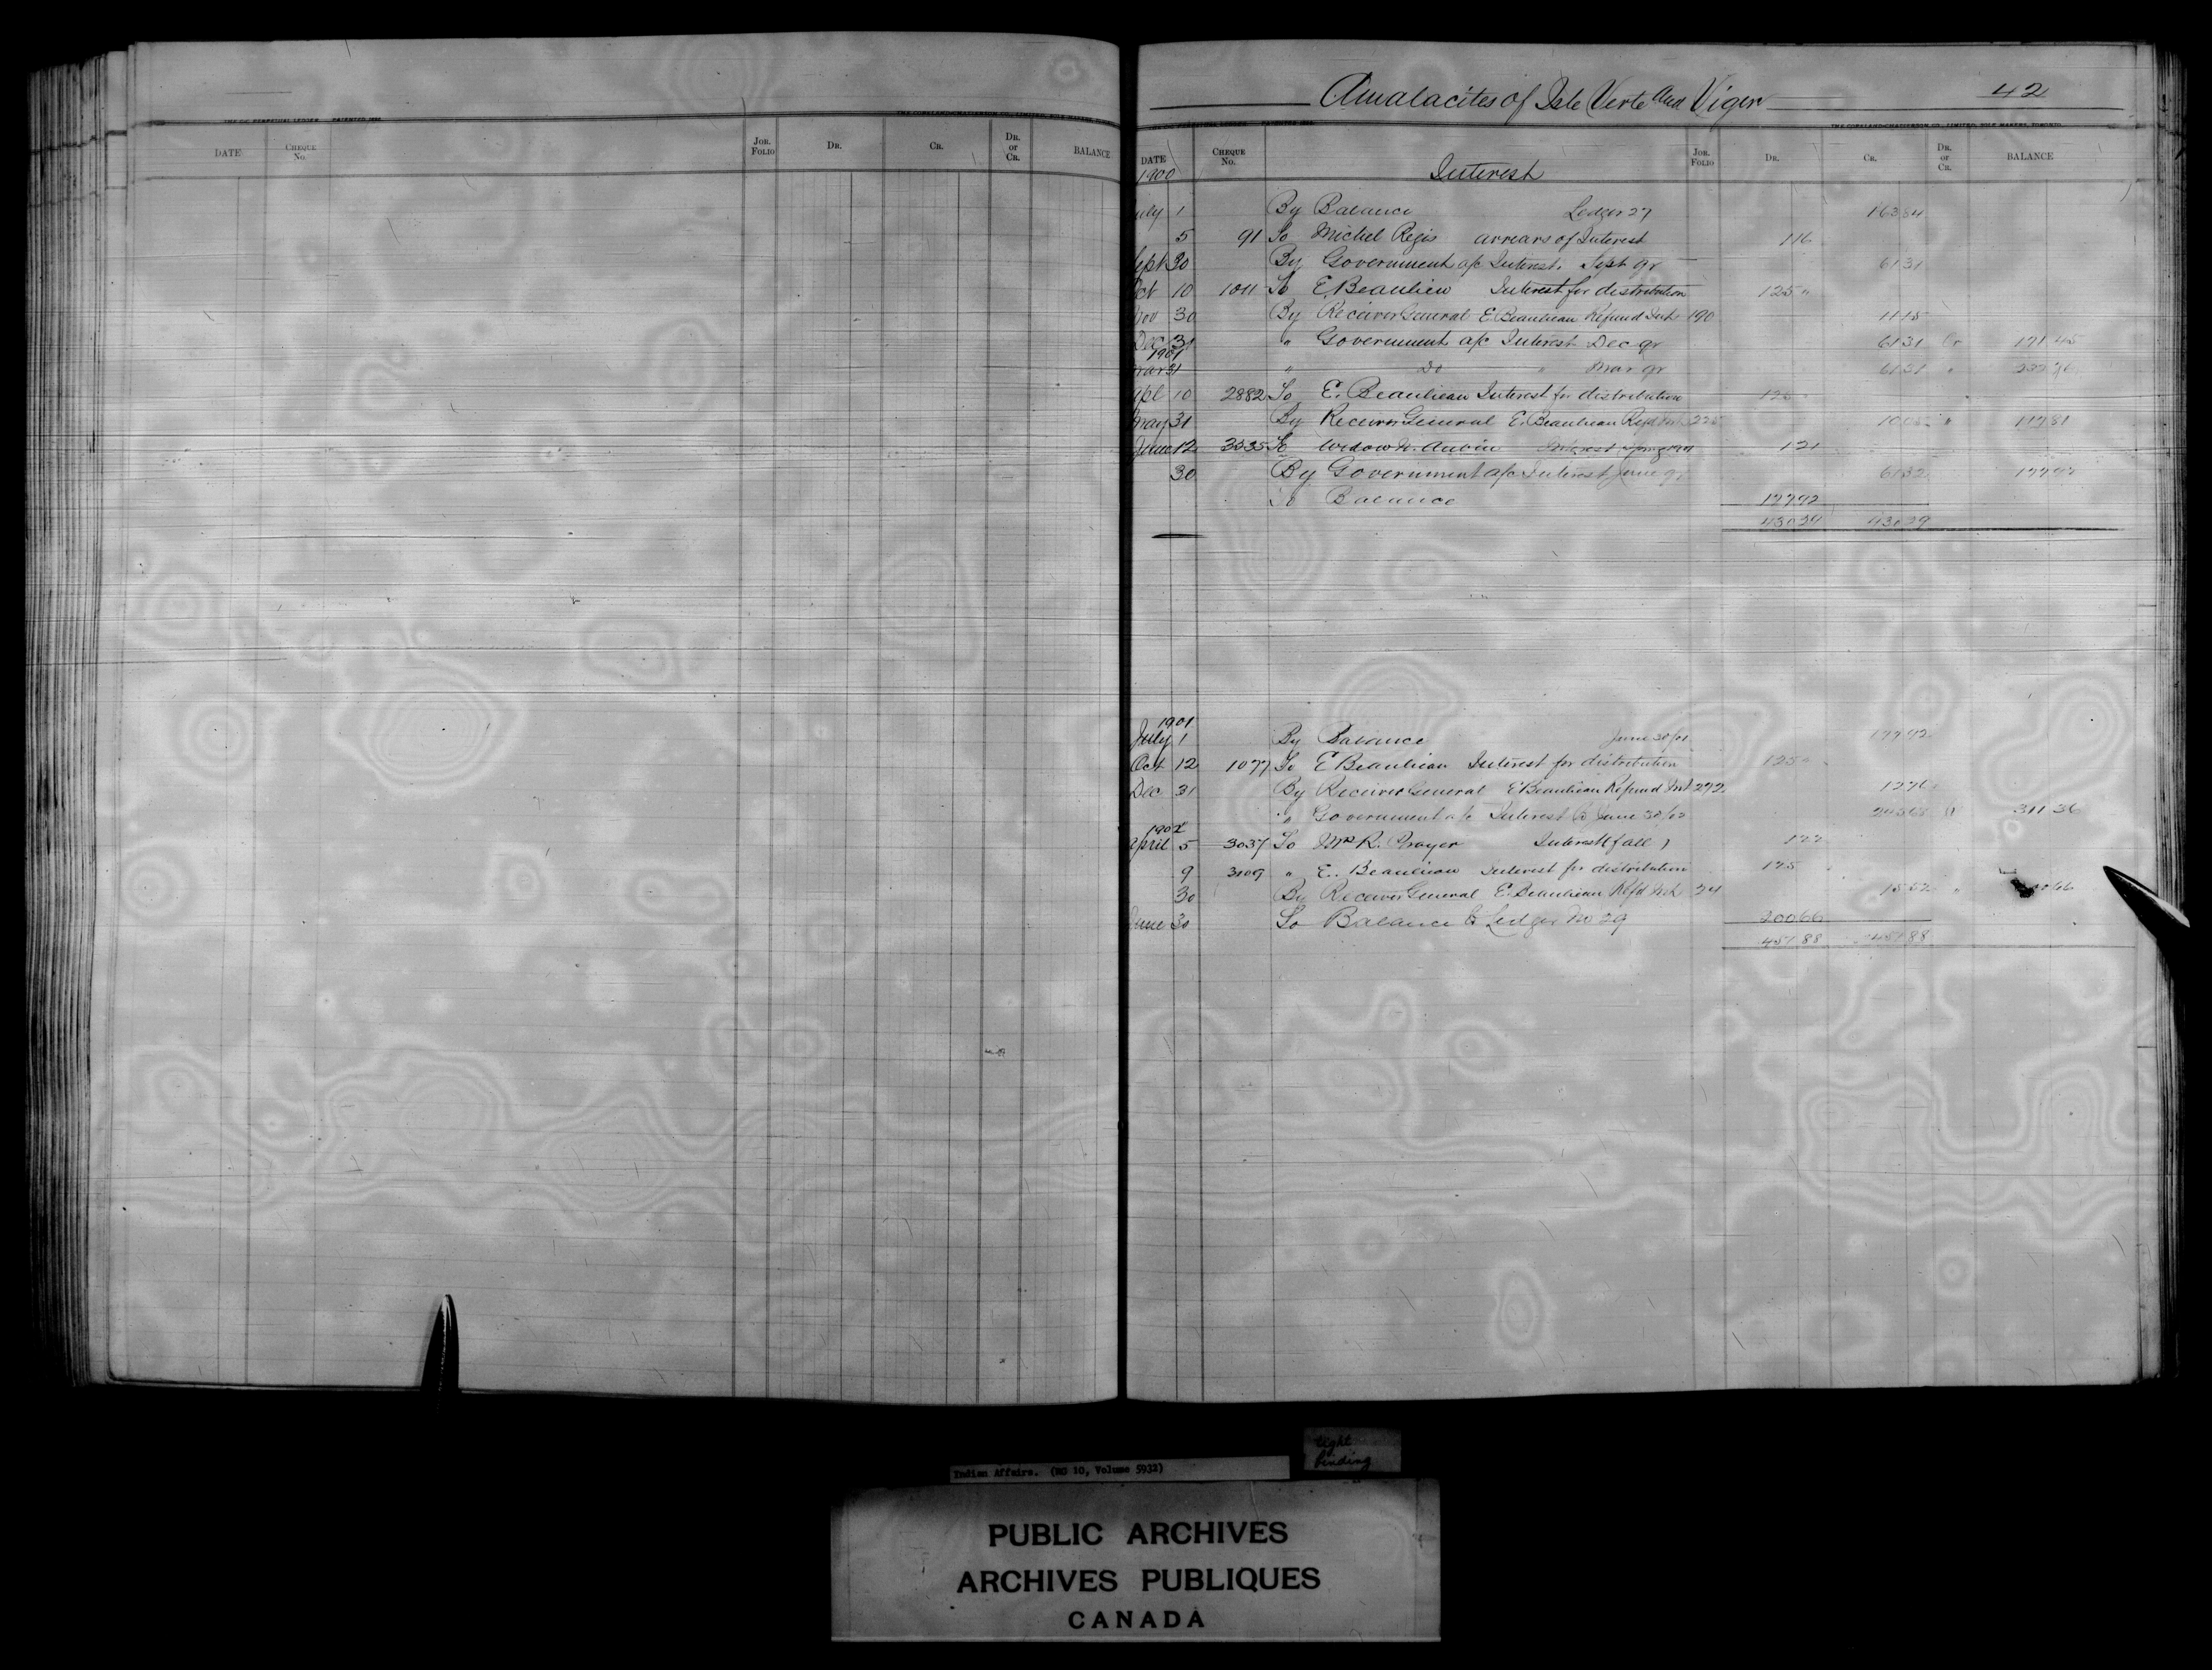 Amalacites of Isle Verte and Viger 42
THE C-C PERPETUAL LEDGER PATENTED 1896 THE COPELAND-CHATTERSON CO., LIMITED, SOLE MAKERS
DATE CHEQUE No. JOR. FOLIO DR. CR. DR. or CR. BALANCE
THE COPELAND-CHATTERSON CO., LIMITED, SOLE MAKERS, TORONTO.
DATE CHEQUE No. JOR. FOLIO DR. CR. DR. or CR. BALANCE
1900 Interest
uly 1 By Balance Ledger 27 16384
5 91 To Michel Regis arrears of Interest 116
Sept 30 By Government a/c Interest. Sept qr 6131
Oct 10 1011 To E. Beaulieu Interest for distribution 125 "
Nov 30 By Receiver General E. Beaulieau Refund Int 190 1115
Dec 31 " Government a/c Interest Dec qr 6131 Cr 17145
1901
Mar 31 " Do " Mar qr 6131 " 23276
Apl 10 2882 To E. Beaulieau Interest for distribution 125
May 31 By Receiver General E. Beaulieau Refd Int 225 1005 " 11781
June 12 3535 To Widow N. Aubin Interest Spring 1901 121
30 By Government a/c Interest June qr 6132 17792
To Balance 17792
43029 43029
1901
July 1 By Balance June 30/01 17792
Oct 12 1077 To E Beaulieau Interest for distribution 125 "
Dec 31 By Receiver General E Beaulieau Refund Int 272 1276
" Government a/c Interest to June 30/02 24568 Cr 31136
1902
April 5 3037 To Mrs R. Interest (fall ) 122
9 3109 " E. Beaulieau Interest for distribution 125
30 By Receiver General E. Beaulieau Refd Int 24 1552 " 20066
June 30 To Balance to Ledger No 29 20066
45188 45188
Indian Affairs. (RG 10, Volume 5932)
tight
binding
PUBLIC ARCHIVES
ARCHIVES PUBLIQUES
CANADA